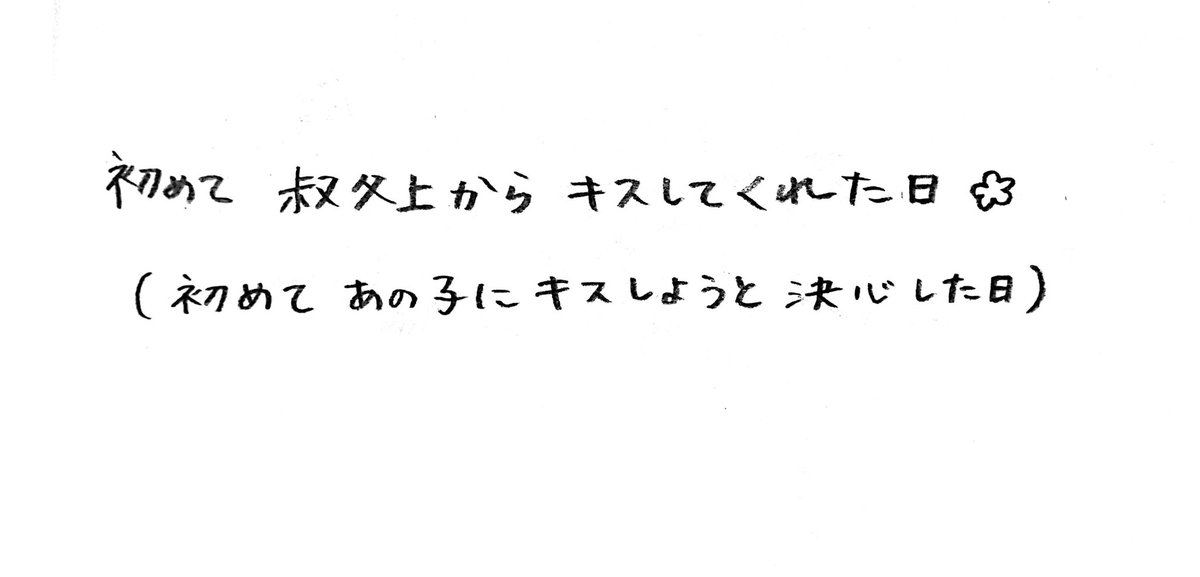 初めて 叔父上から キスしてくれた日
(初めて あの子に キスしようと 決心した日)